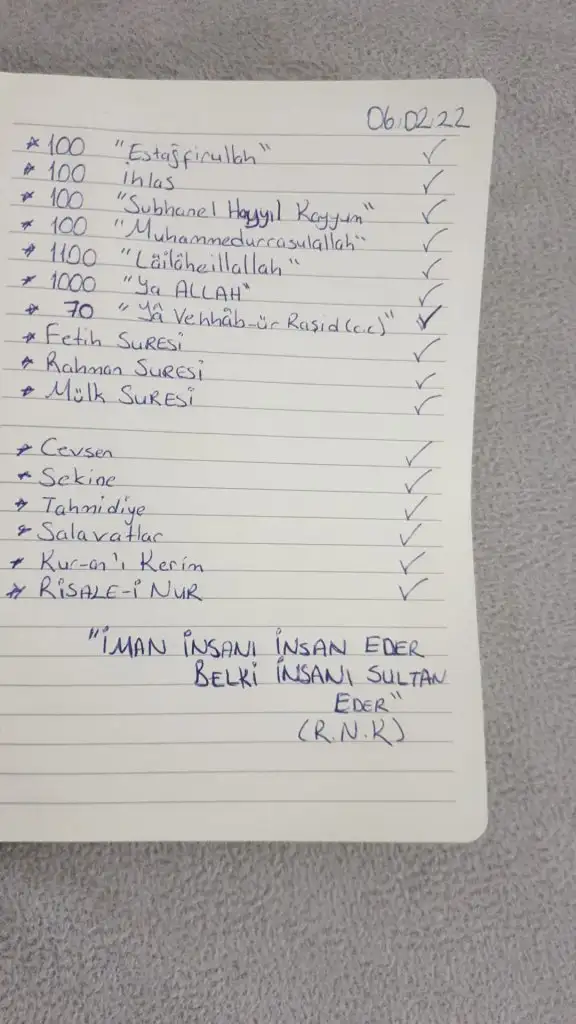 06.02.22
* 100 "Estağfirullah" ✓
* 100 ihlas ✓
* 100 "Subhanel Hayyıl Kayyum" ✓
* 100 "Muhammedurrasulallah" ✓
* 1100 "Lâilâheillallah" ✓
* 1000 "Ya ALLAH" ✓
* 70 "Yâ Vehhâb-ür Raşid (c.c)" ✓
* Fetih SURESİ ✓
* Rahman SURESİ ✓
* Mülk SURESİ ✓
* Cevsen ✓
* Sekine ✓
* Tahmidiye ✓
* Salavatlar ✓
* Kur-an'ı Kerim ✓
* RİSALE-İ NUR ✓
"İMAN İNSANI İNSAN EDER
BELKİ İNSANI SULTAN
EDER"
(R.N.K)